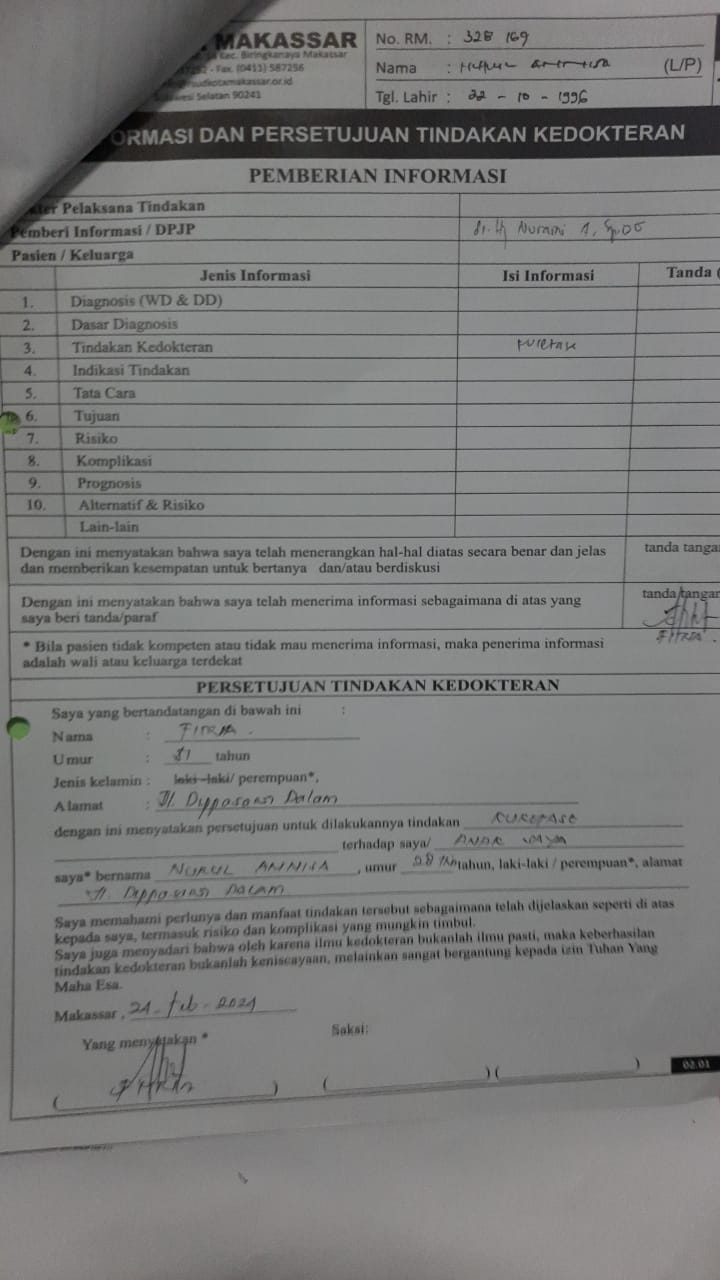 MAKASSAR
Kec. Biringkanaya Makassar
- Fax. (0411) 587256
Selatan 90241
No. RM. : 328 169
Nama : (L/P)
Tgl. Lahir : 22 - 10 - 1996
ORMASI DAN PERSETUJUAN TINDAKAN KEDOKTERAN
PEMBERIAN INFORMASI
Pelaksana Tindakan
Pemberi Informasi / DPJP
Pasien / Keluarga
Jenis Informasi Isi Informasi Tanda (
1. Diagnosis (WD & DD)
2. Dasar Diagnosis
3. Tindakan Kedokteran kuretase
4. Indikasi Tindakan
5. Tata Cara
6. Tujuan
7. Risiko
8. Komplikasi
9. Prognosis
10. Alternatif & Risiko
Lain-lain
Dengan ini menyatakan bahwa saya telah menerangkan hal-hal diatas secara benar dan jelas tanda tangan
dan memberikan kesempatan untuk bertanya dan/atau berdiskusi
Dengan ini menyatakan bahwa saya telah menerima informasi sebagaimana di atas yang tanda tangan
saya beri tanda/paraf
FITRIA.
* Bila pasien tidak kompeten atau tidak mau menerima informasi, maka penerima informasi
adalah wali atau keluarga terdekat
PERSETUJUAN TINDAKAN KEDOKTERAN
Saya yang bertandatangan di bawah ini :
Nama : FITRIA.
Umur : tahun
Jenis kelamin : laki-laki/ perempuan*,
Alamat : Jl. Dalam
dengan ini menyatakan persetujuan untuk dilakukannya tindakan
terhadap saya/ ANAK SAYA
saya* bernama NURUL ANNISA , umur 28 tahun, laki-laki / perempuan*, alamat
Jl. Dalam
Saya memahami perlunya dan manfaat tindakan tersebut sebagaimana telah dijelaskan seperti di atas
kepada saya, termasuk risiko dan komplikasi yang mungkin timbul.
Saya juga menyadari bahwa oleh karena ilmu kedokteran bukanlah ilmu pasti, maka keberhasilan
tindakan kedokteran bukanlah keniscayaan, melainkan sangat bergantung kepada izin Tuhan Yang
Maha Esa.
Makassar, 21 - Feb - 2021
Yang menyatakan * Saksi:
FITRIA
( ) ( ) ( )
02.01